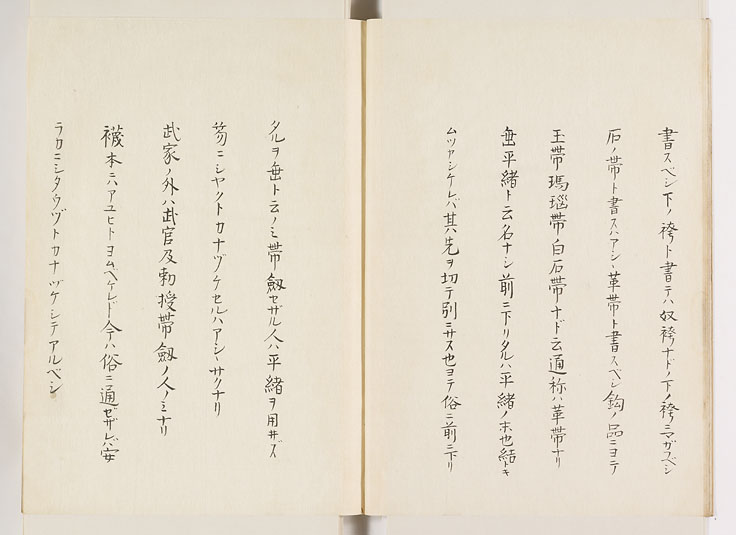 書スベシ下ノ袴ト書テハ奴袴ナドノ下ノ袴ニマガフベシ
石ノ帯ト書スハアシヽ革帯ト書スベシ鉤ノ品ニヨテ
玉帯瑪瑙帯白石帯ナド云通称ハ革帯ナリ
垂平緒ト云名ナシ前ニ下リタルハ平緒ノ末也結トキ
ムツカシケレバ其先ヲ切テ別ニサス也ヨテ俗ニ前ニ下リ
タルヲ垂ト云ノミ帯劔セザル人ハ平緒ヲ用井ズ
笏ニシヤクトカナヅケセルハアシヽサクナリ
武家ノ外ハ武官及勅授帯劔ノ人ノミナリ
襪本ニハアユヒトヨムベケレド今ハ俗ニ通ゼザレバ安
ラカニシタウヅトカナヅケシテアルベシ